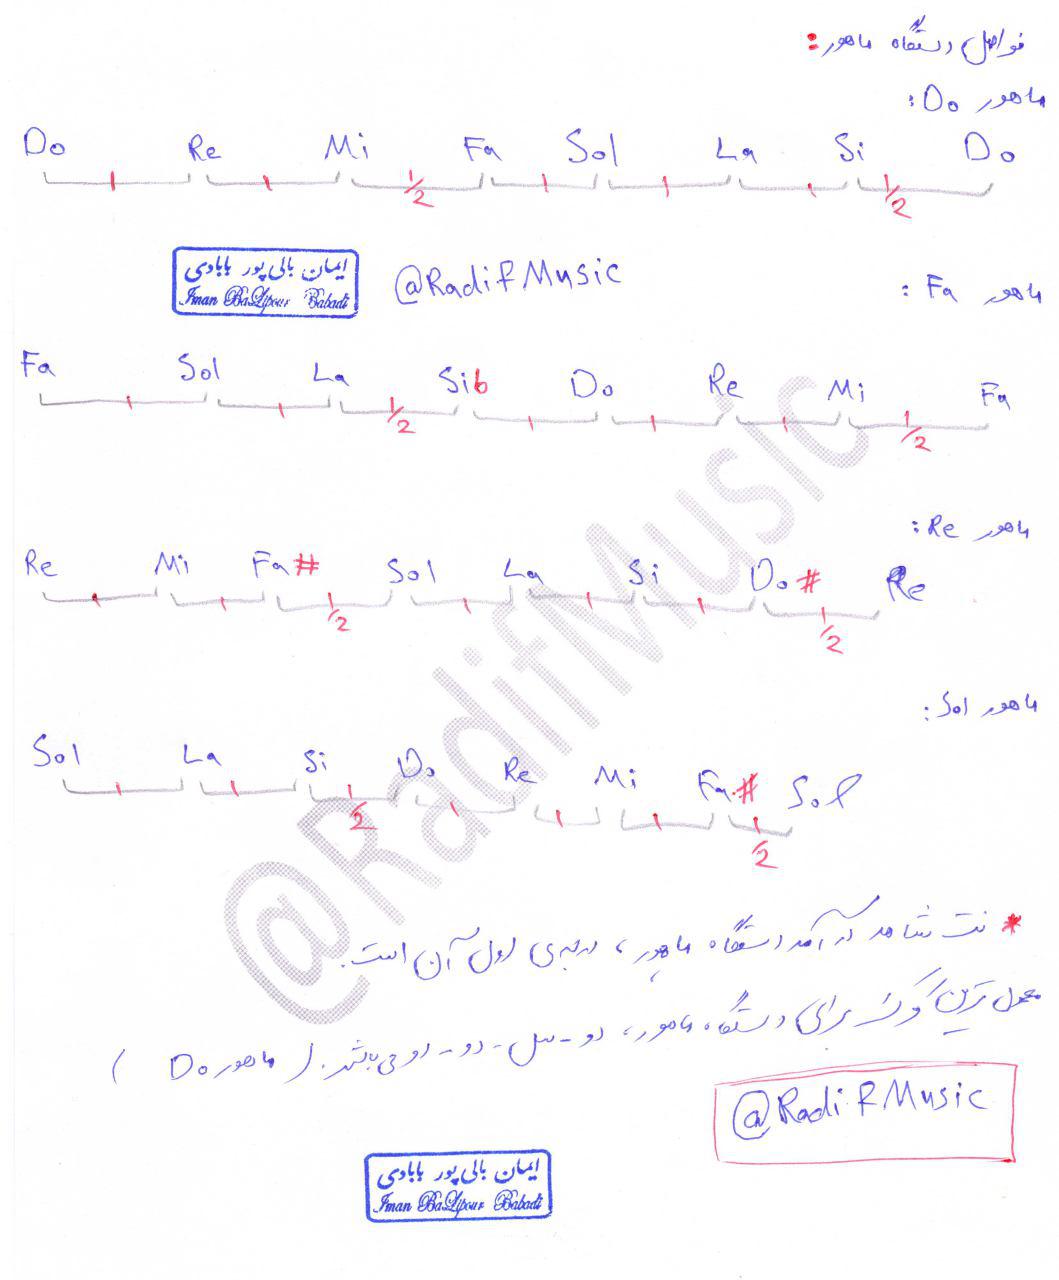 فواصل دستگاه ماهور:
ماهور Do:
Do Re Mi Fa Sol La Si Do
1 1 1/2 1 1 1 1/2
ایمان بالی پور بابادی
Iman BaLipour Babadi
@RadifMusic
ماهور Fa:
Fa Sol La Sib Do Re Mi Fa
1 1 1/2 1 1 1 1/2
ماهور Re:
Re Mi Fa# Sol La Si Do# Re
1 1 1/2 1 1 1 1/2
ماهور Sol:
Sol La Si Do Re Mi Fa# Sol
1 1 1/2 1 1 1 1/2
@RadifMusic
* نت شاهد درآمد دستگاه ماهور، درجه‌ی اول آن است.
معمول ترین کوک برای دستگاه ماهور، دو-سل-دو-دو می باشد. (ماهور Do)
@RadifMusic
ایمان بالی پور بابادی
Iman BaLipour Babadi